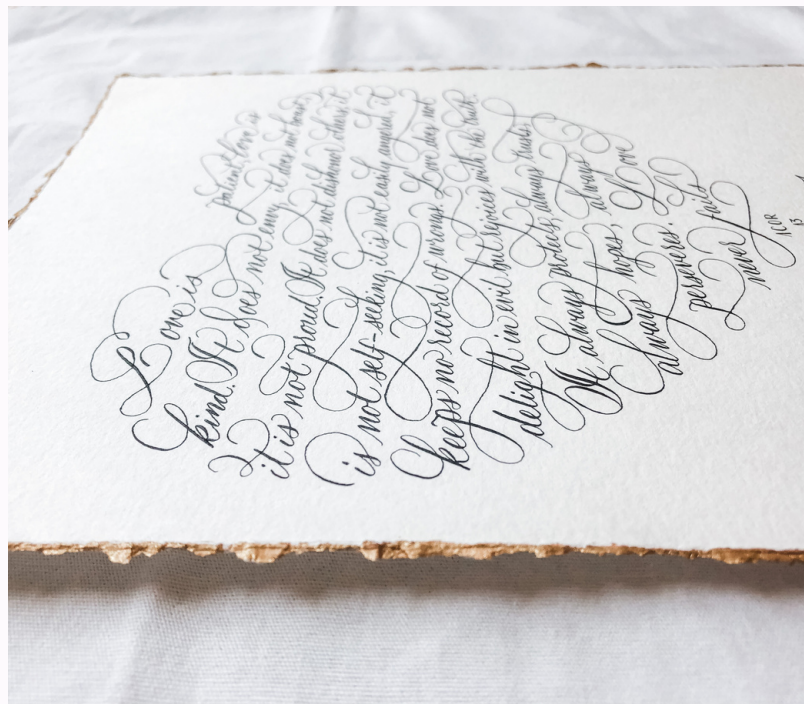 Love is patient, love is
kind. It does not envy, it does not boast,
it is not proud. It does not dishonor others, it
is not self-seeking, it is not easily angered, it
keeps no record of wrongs. Love does not
delight in evil but rejoices with the truth.
It always protects, always trusts,
always hopes, always
perseveres. Love
never fails
1 COR
13